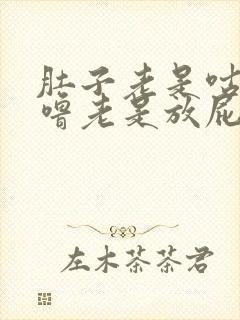 肚子老是咕
噜老是放屁
左木茶茶君